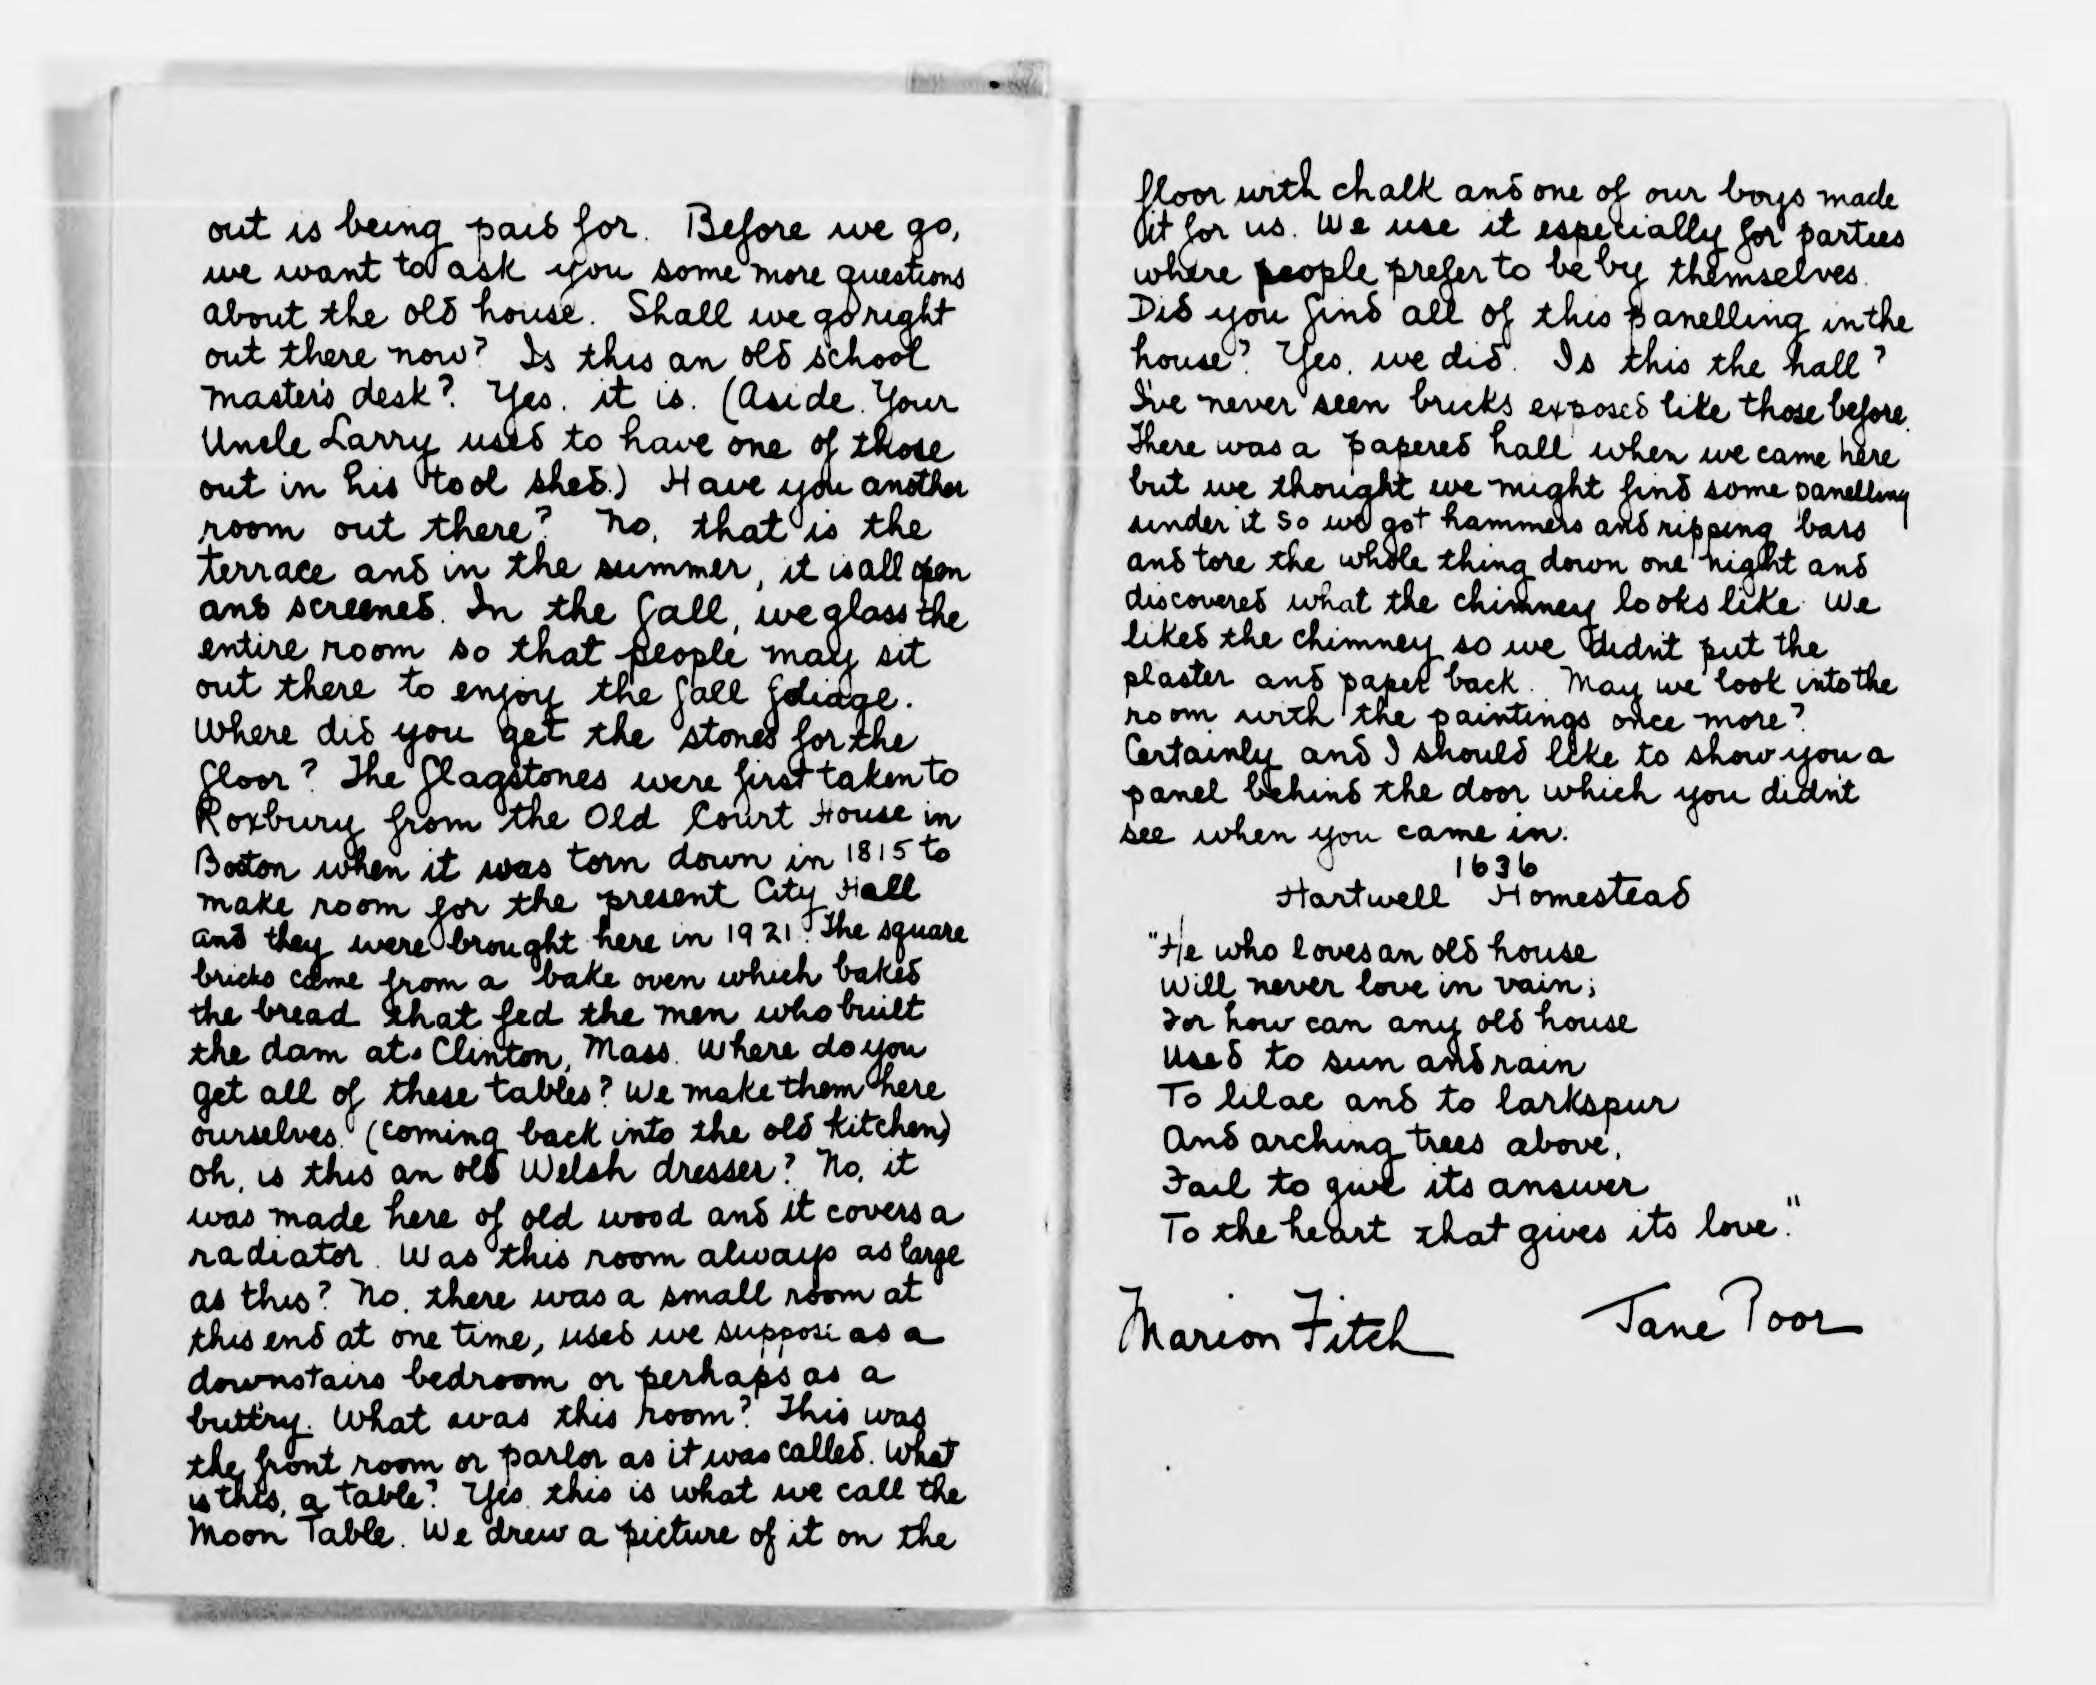 out is being paid for. Before we go,
we want to ask you some more questions
about the old house. Shall we go right
out there now? Is this an old school
master's desk? Yes, it is. (Aside. Your
Uncle Larry used to have one of those
out in his tool shed.) Have you another
room out there? No, that is the
terrace and in the summer, it is all open
and screened. In the fall, we glass the
entire room so that people may sit
out there to enjoy the fall foliage.
Where did you get the stones for the
floor? The flagstones were first taken to
Roxbury from the Old Court House in
Boston when it was torn down in 1815 to
make room for the present City Hall
and they were brought here in 1921. The square
bricks came from a bake oven which baked
the bread that fed the men who built
the dam at Clinton, Mass. Where do you
get all of these tables? We make them here
ourselves. (coming back into the old kitchen)
Oh, is this an old Welsh dresser? No, it
was made here of old wood and it covers a
radiator. Was this room always as large
as this? No, there was a small room at
this end at one time, used we suppose as a
downstairs bedroom or perhaps as a
butt'ry. What was this room? This was
the front room or parlor as it was called. What
is this, a table? Yes, this is what we call the
Moon Table. We drew a picture of it on the
floor with chalk and one of our boys made
it for us. We use it especially for parties
where people prefer to be by themselves.
Did you find all of this panelling in the
house? Yes, we did. Is this the hall?
I've never seen bricks exposed like those before.
There was a papered hall when we came here
but we thought we might find some panelling
under it so we got hammers and ripping bars
and tore the whole thing down one night and
discovered what the chimney looks like. We
liked the chimney so we didn't put the
plaster and paper back. May we look into the
room with the paintings once more?
Certainly and I should like to show you a
panel behind the door which you didn't
see when you came in.
1636
Hartwell Homestead
"He who loves an old house
Will never love in vain;
For how can any old house
Used to sun and rain
To lilac and to larkspur
And arching trees above,
Fail to give its answer
To the heart that gives its love."
Marion Fitch Jane Poor